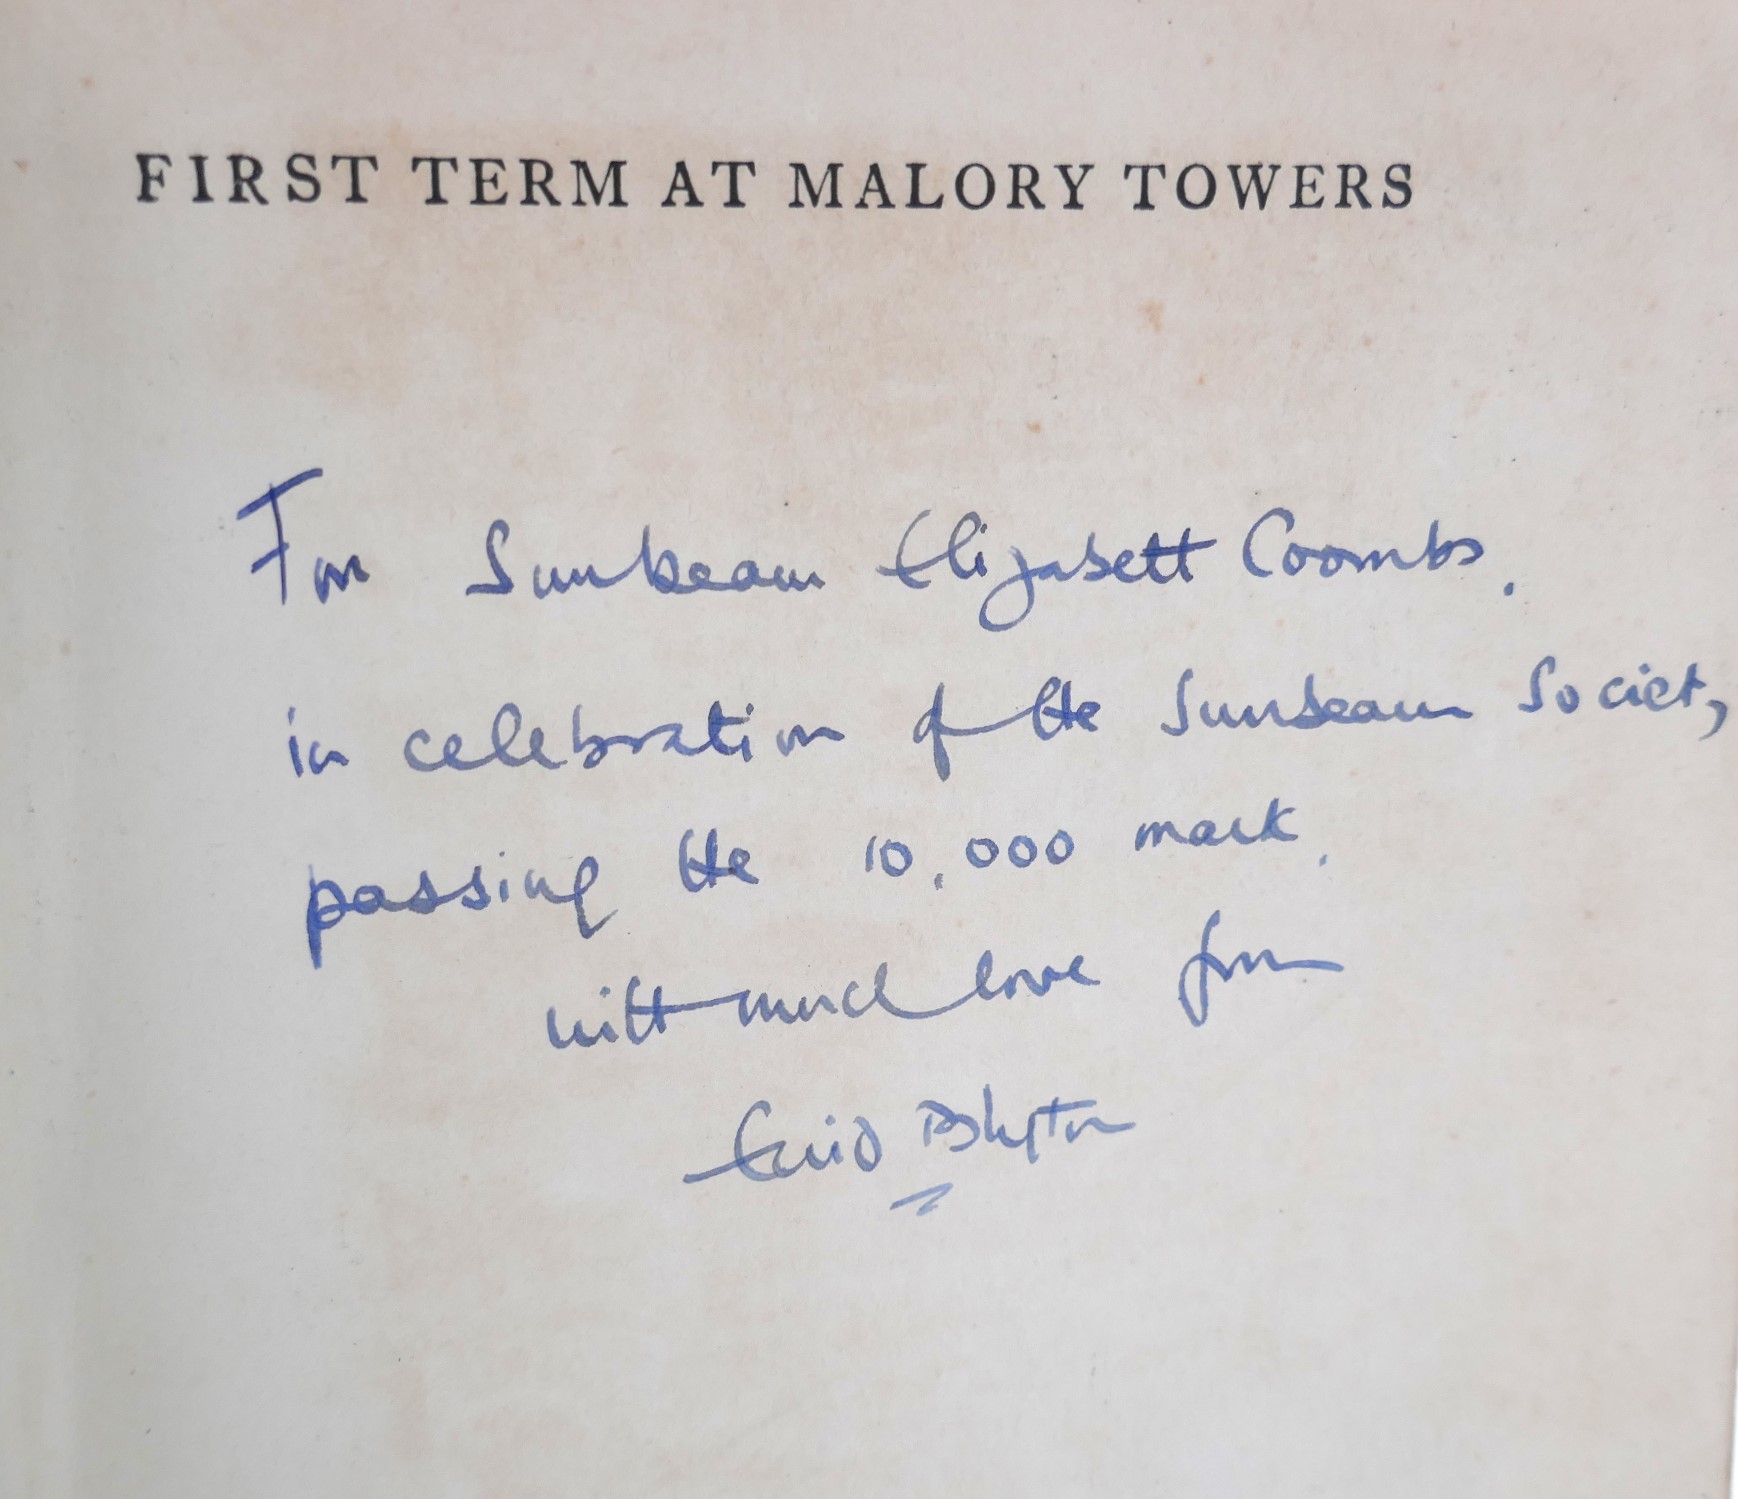 FIRST TERM AT MALORY TOWERS
For Sunbeam Elizabeth Coombs.
in celebration of the Sunbeam Society
passing the 10,000 mark.
with much love from
Enid Blyton